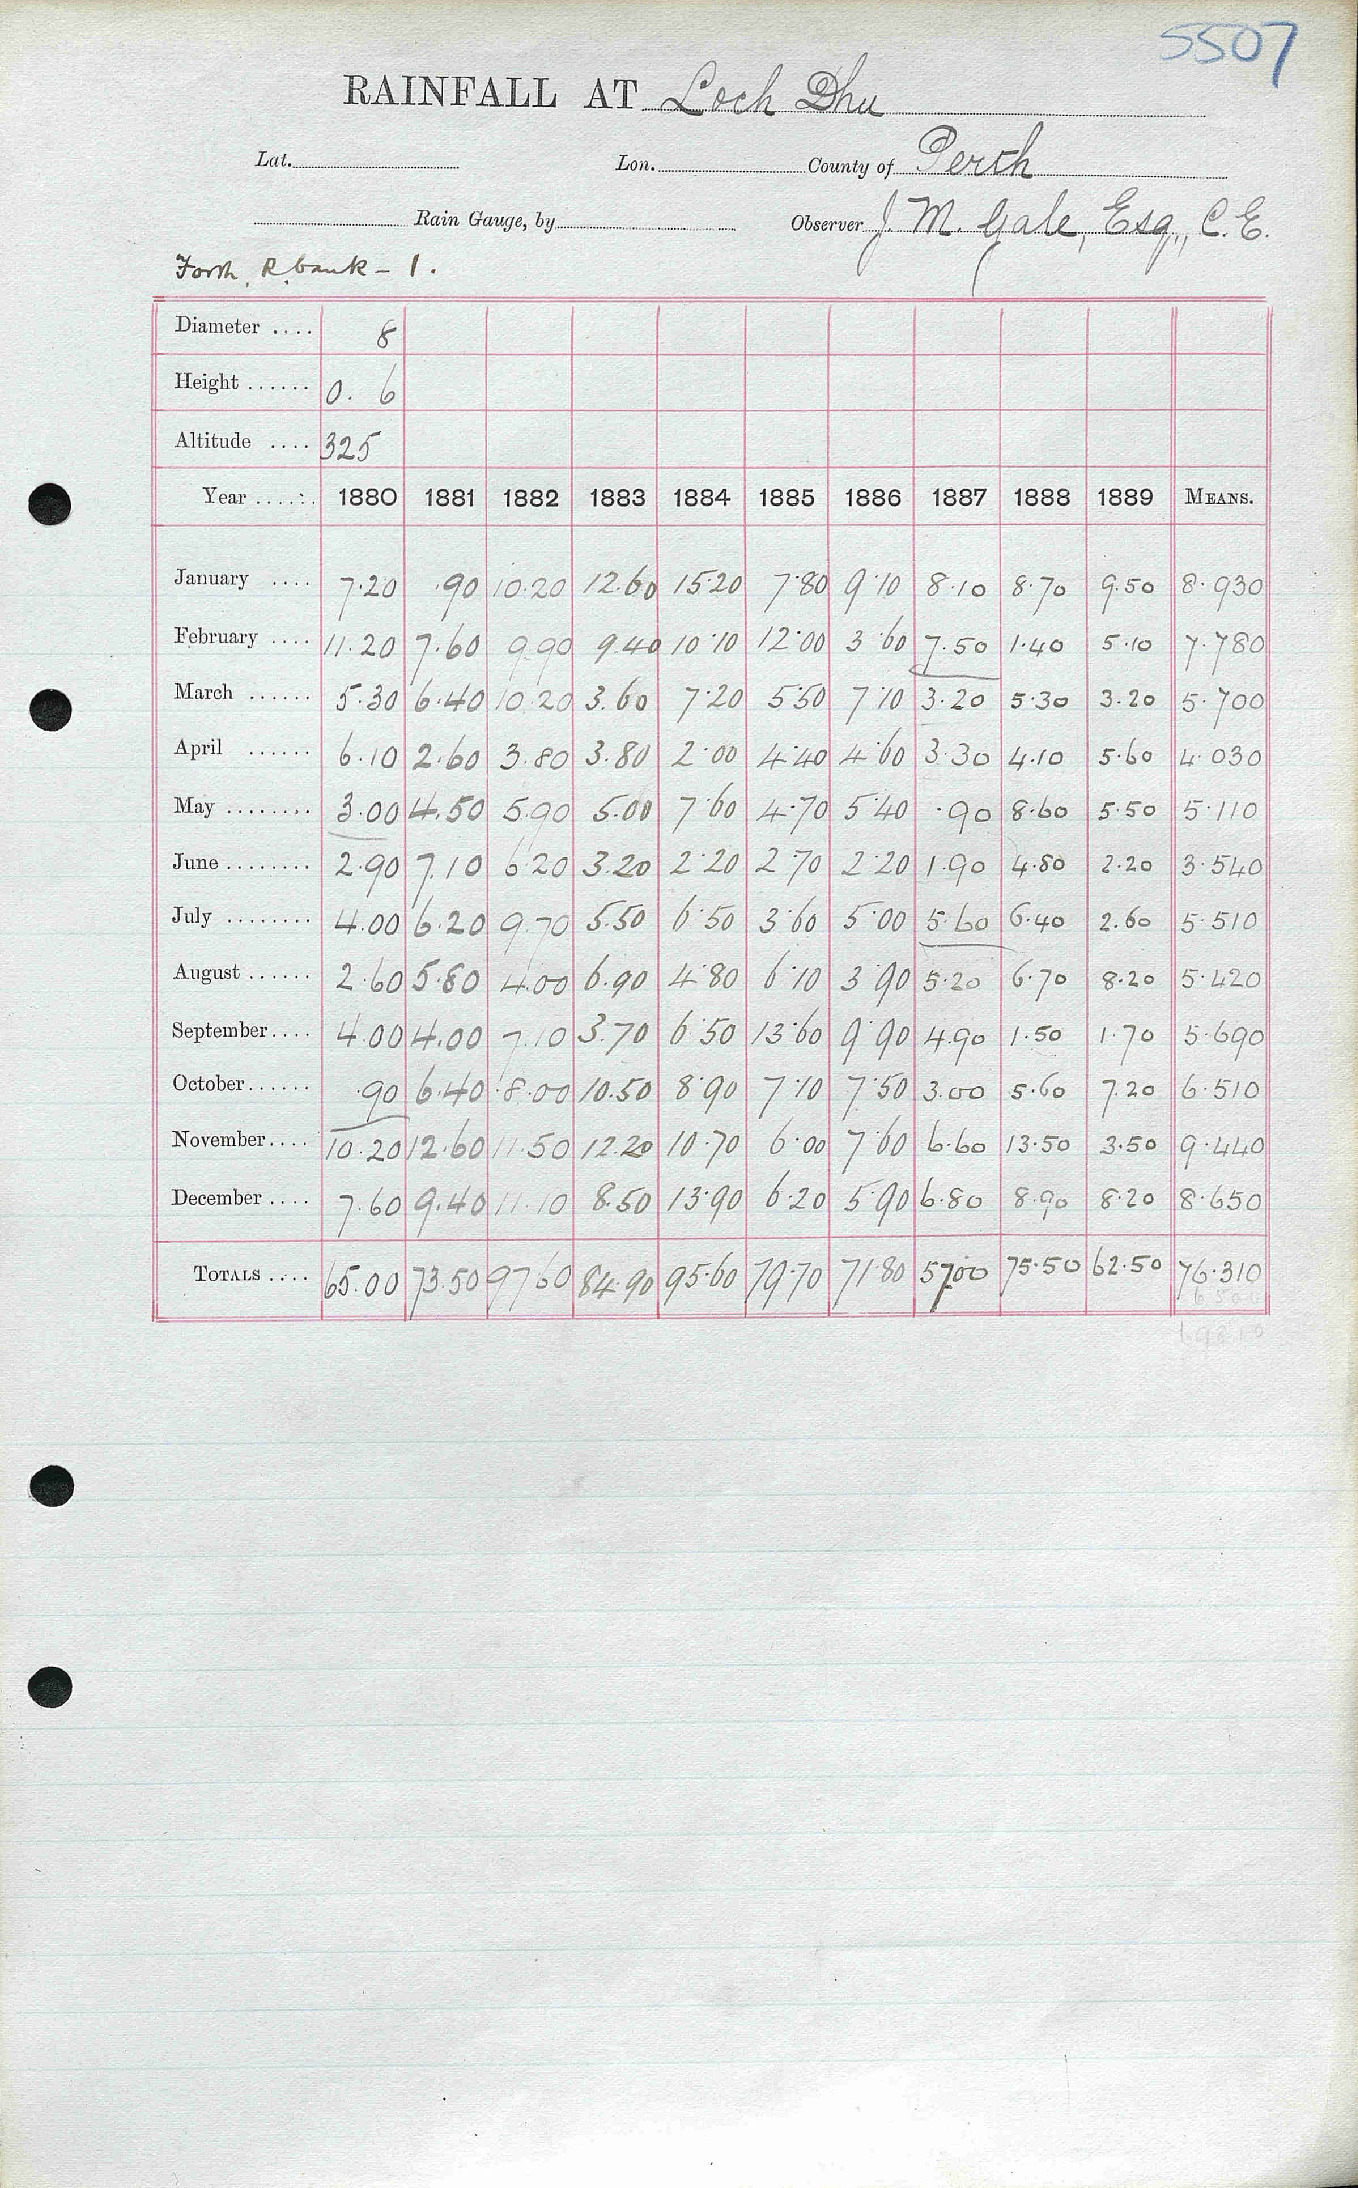 5507
RAINFALL AT Loch Dhu
Lat. Lon. County of Perth
Rain Gauge, by Observer J. M. Gale, Esq., C.E.
Forth, R. bank - 1.
Diameter .... 8
Height ...... 0. 6
Altitude .... 325
Year ...... 1880 1881 1882 1883 1884 1885 1886 1887 1888 1889 MEANS.
January .... 7.20 .90 10.20 12.60 15.20 7.80 9.10 8.10 8.70 9.50 8.930
February .... 11.20 7.60 9.90 9.40 10.10 12.00 3.60 7.50 1.40 5.10 7.780
March ...... 5.30 6.40 10.20 3.60 7.20 5.50 7.10 3.20 5.30 3.20 5.700
April ...... 6.10 2.60 3.80 3.80 2.00 4.40 4.60 3.30 4.10 5.60 4.030
May ........ 3.00 4.50 5.90 5.00 7.60 4.70 5.40 .90 8.60 5.50 5.110
June ........ 2.90 7.10 6.20 3.20 2.20 2.70 2.20 1.90 4.80 2.20 3.540
July ........ 4.00 6.20 9.70 5.50 6.50 3.60 5.00 5.60 6.40 2.60 5.510
August ...... 2.60 5.80 4.00 6.90 4.80 6.10 3.90 5.20 6.70 8.20 5.420
September .... 4.00 4.00 7.10 3.70 6.50 13.60 9.90 4.90 1.50 1.70 5.690
October ...... .90 6.40 8.00 10.50 8.90 7.10 7.50 3.00 5.60 7.20 6.510
November .... 10.20 12.60 11.50 12.20 10.70 6.00 7.60 6.60 13.50 3.50 9.440
December .... 7.60 9.40 11.10 8.50 13.90 6.20 5.90 6.80 8.90 8.20 8.650
TOTALS .... 65.00 73.50 97.60 84.90 95.60 79.70 71.80 57.00 75.50 62.50 76.310